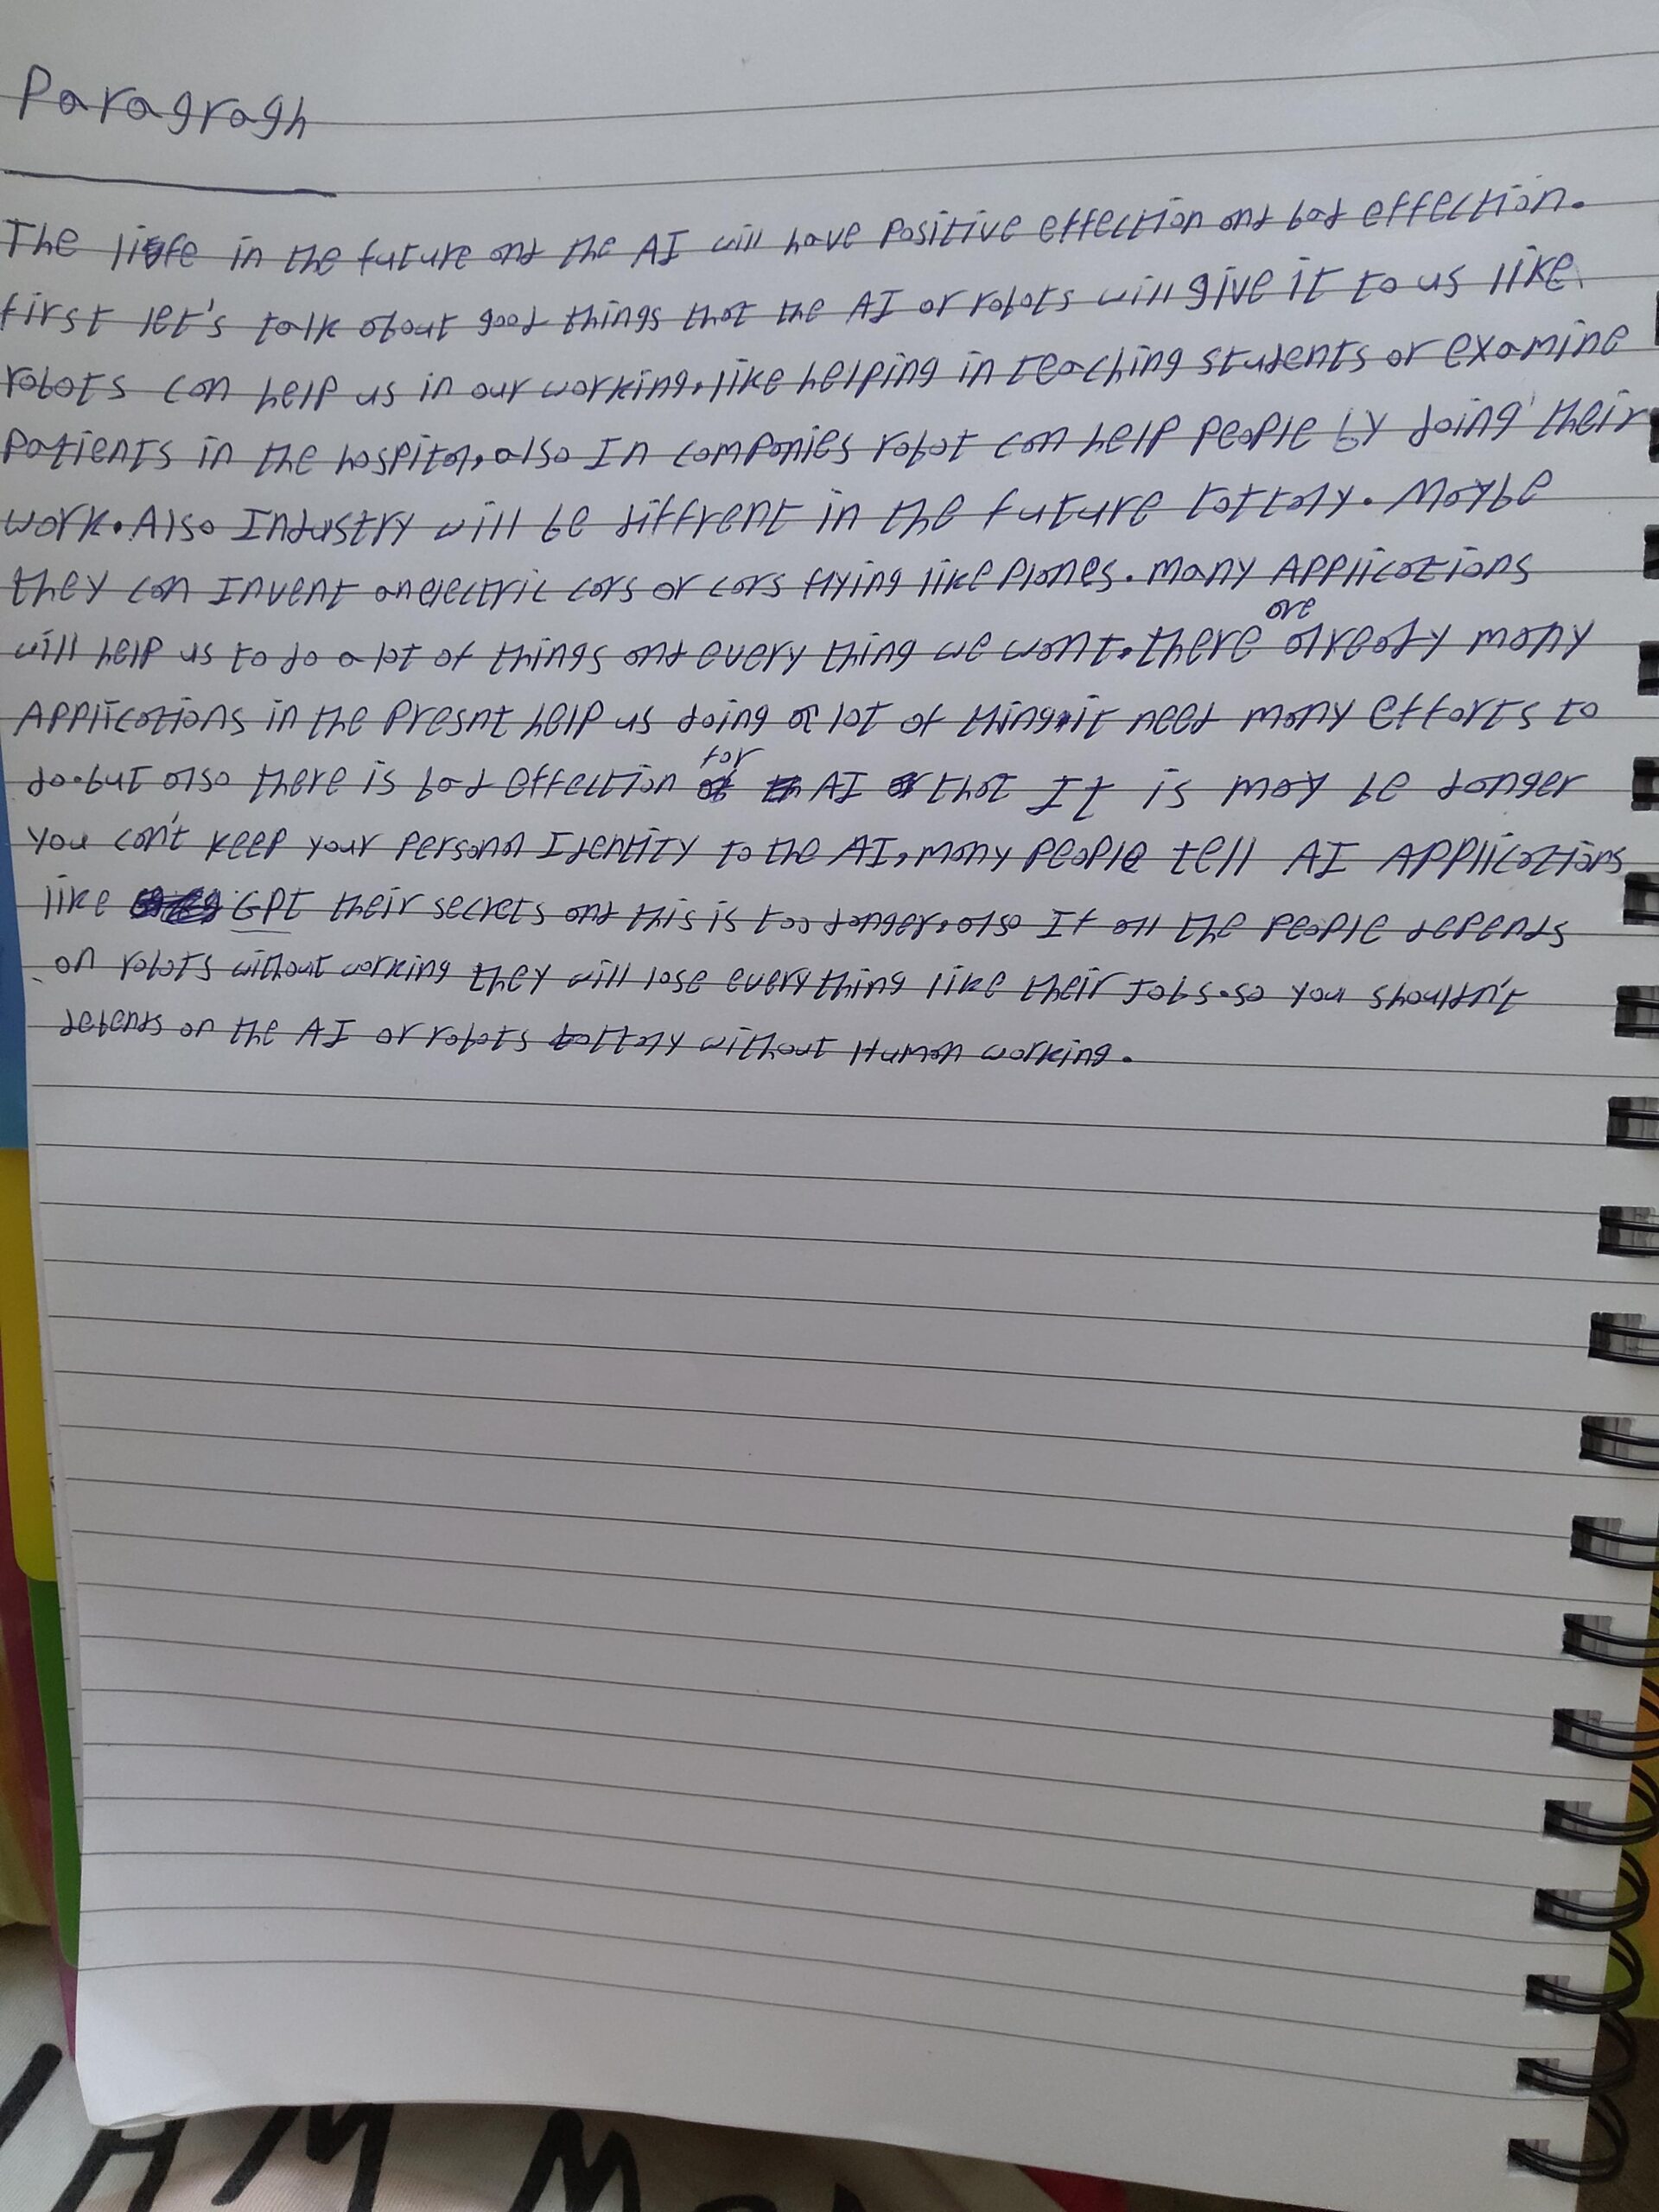 Paragragh
The life in the future and the AI will have positive effection and bad effection.
first let's talk about good things that the AI or robots will give it to us like
robots can help us in our working, like helping in teaching students or examine
patients in the hospital, also In companies robot can help people by doing their
work. Also Industry will be diffrent in the future tottaly. Maybe
they can Invent an electric cars or cars flying like planes. many Applications
will help us to do a lot of things and every thing we want. there are already many
Applications in the presnt help us doing a lot of thing it need many efforts to
do. but also there is bad effection for AI that It is may be danger
you can't keep your personal Identity to the AI, many people tell AI Applications
like GPT their secrets and this is too danger, also If all the people depends
on robots without working they will lose everything like their Jobs. so you shouldn't
depends on the AI or robots tottaly without Human working.
AM